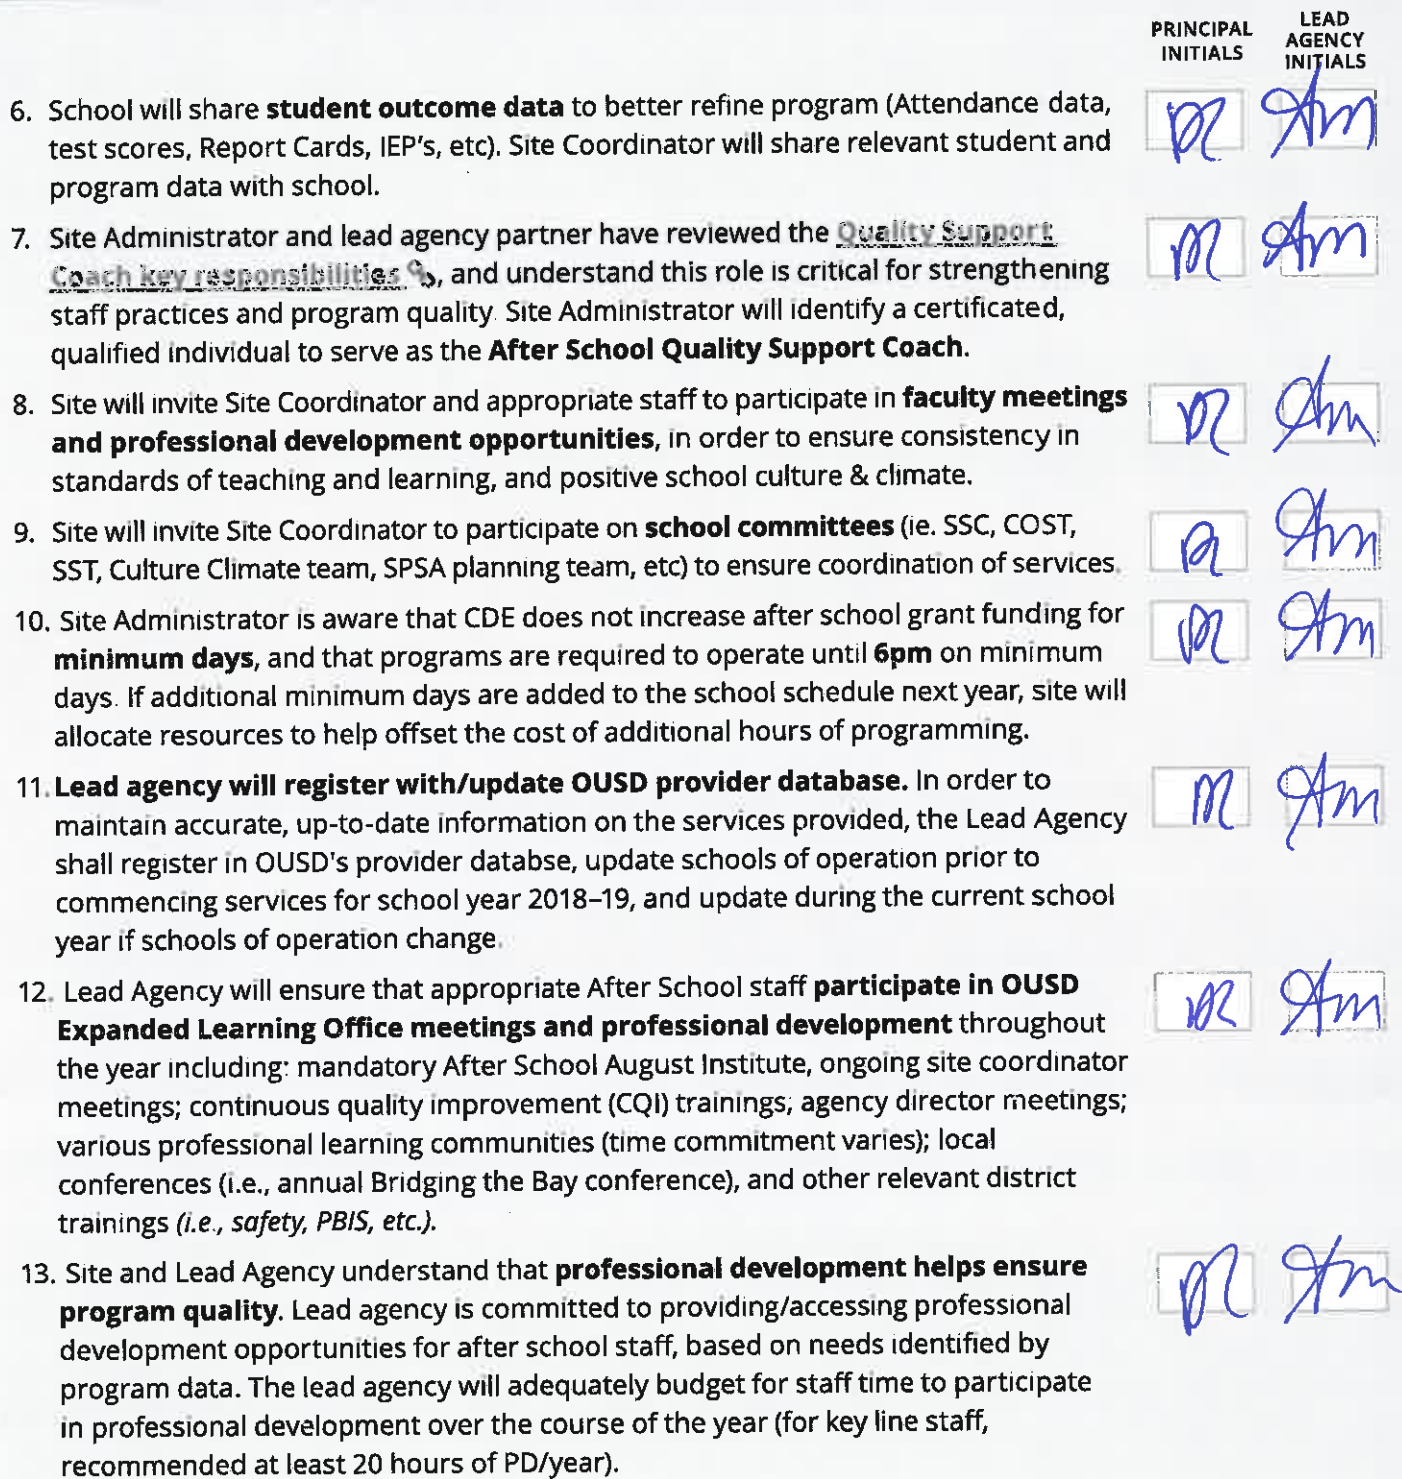 PRINCIPAL
INITIALS
LEAD
AGENCY
INITIALS
6. School will share student outcome data to better refine program (Attendance data,
test scores, Report Cards, IEP's, etc). Site Coordinator will share relevant student and
program data with school.
7. Site Administrator and lead agency partner have reviewed the Quality Support
Coach key responsibilities, and understand this role is critical for strengthening
staff practices and program quality. Site Administrator will identify a certificated,
qualified individual to serve as the After School Quality Support Coach.
8. Site will invite Site Coordinator and appropriate staff to participate in faculty meetings
and professional development opportunities, in order to ensure consistency in
standards of teaching and learning, and positive school culture & climate.
9. Site will invite Site Coordinator to participate on school committees (ie. SSC, COST,
SST, Culture Climate team, SPSA planning team, etc) to ensure coordination of services.
10. Site Administrator is aware that CDE does not increase after school grant funding for
minimum days, and that programs are required to operate until 6pm on minimum
days. If additional minimum days are added to the school schedule next year, site will
allocate resources to help offset the cost of additional hours of programming.
11. Lead agency will register with/update OUSD provider database. In order to
maintain accurate, up-to-date information on the services provided, the Lead Agency
shall register in OUSD's provider databse, update schools of operation prior to
commencing services for school year 2018–19, and update during the current school
year if schools of operation change.
12. Lead Agency will ensure that appropriate After School staff participate in OUSD
Expanded Learning Office meetings and professional development throughout
the year including: mandatory After School August Institute, ongoing site coordinator
meetings; continuous quality improvement (CQI) trainings; agency director meetings;
various professional learning communities (time commitment varies); local
conferences (i.e., annual Bridging the Bay conference), and other relevant district
trainings (i.e., safety, PBIS, etc.).
13. Site and Lead Agency understand that professional development helps ensure
program quality. Lead agency is committed to providing/accessing professional
development opportunities for after school staff, based on needs identified by
program data. The lead agency will adequately budget for staff time to participate
in professional development over the course of the year (for key line staff,
recommended at least 20 hours of PD/year).